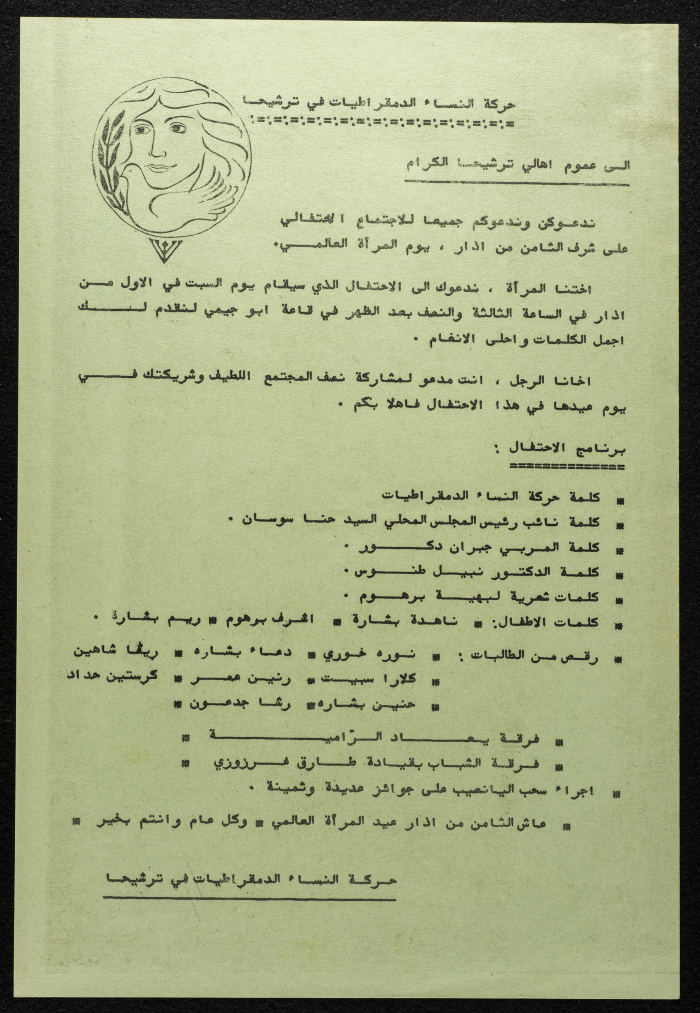 حركة النساء الدمقراطيات في ترشيحا
الى عموم اهالي ترشيحا الكرام
ندعوكن وندعوكم جميعا للاجتماع الاحتفالي
على شرف الثامن من اذار ، يوم المرأة العالمي.
اختنا المرأة ، ندعوك الى الاحتفال الذي سيقام يوم السبت في الاول من
اذار في الساعة الثالثة والنصف بعد الظهر في قاعة ابو جيمي لنقدم لك
اجمل الكلمات واحلى الانغام .
اخانا الرجل ، انت مدعو لمشاركة نصف المجتمع اللطيف وشريكتك في
يوم عيدها في هذا الاحتفال فاهلا بكم .
برنامج الاحتفال :
* كلمة حركة النساء الدمقراطيات
* كلمة نائب رئيس المجلس المحلي السيد حنا سوسان .
* كلمة المربي جبران دكور .
* كلمة الدكتور نبيل طنوس .
* كلمات شعرية لبهية برهوم .
* كلمات الاطفال: * ناهدة بشارة * اشرف برهوم * ريم بشارة .
* رقص من الطالبات : * نوره خوري * دعاء بشاره * ريما شاهين
* كلارا سبيت * رنين عمر * كرستين حداد
* حنين بشاره * رشا جدعون *
* فرقة يعاد الرّامية *
* فرقة الشباب بقيادة طارق غرزوزي *
* اجراء سحب اليانصيب على جوائز عديدة وثمينة .
* عاش الثامن من اذار عيد المرأة العالمي * وكل عام وانتم بخير *
حركة النساء الدمقراطيات في ترشيحا